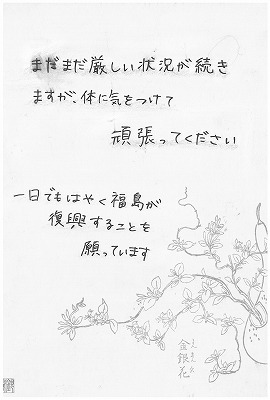 まだまだ厳しい状況が続き
ますが、体に気をつけて
頑張ってください
一日でもはやく福島が
復興することを
願っています
金銀花